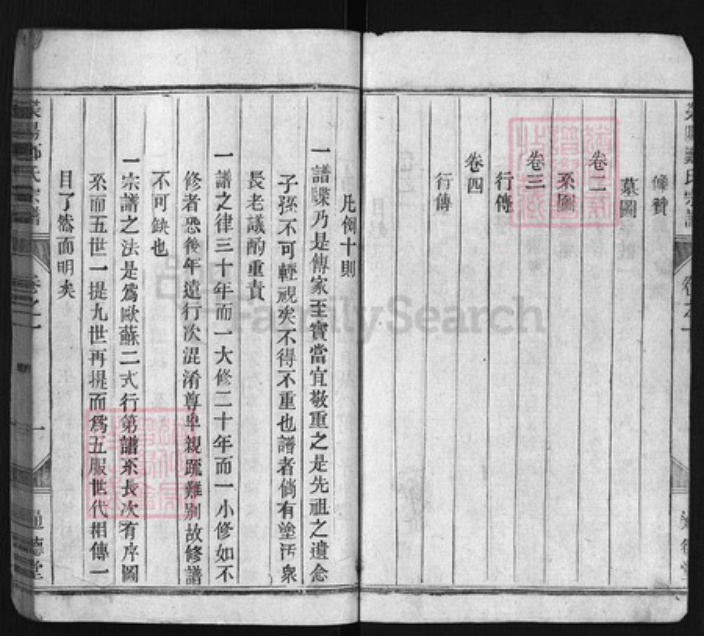 像贊
墓圖
卷二
系圖
卷三
行傳
卷四
行傳
凡例十則
一譜牒乃是傳家至寶當宜敬重之是先祖之遺念
子孫不可輕視矣不得不重也譜者倘有塗汚衆
長老議酌重責
一譜之律三十年而一大修二十年而一小修如不
修者恐後年遠行次混淆尊卑親疏難别故修譜
不可缺也
一宗譜之法是爲歐蘇二式行第譜系長次有序圖
系而五世一提九世再提而爲五服世代相傳一
目了然而明矣
滎陽鄭氏宗譜
卷之一
一
通德堂
FamilySearch